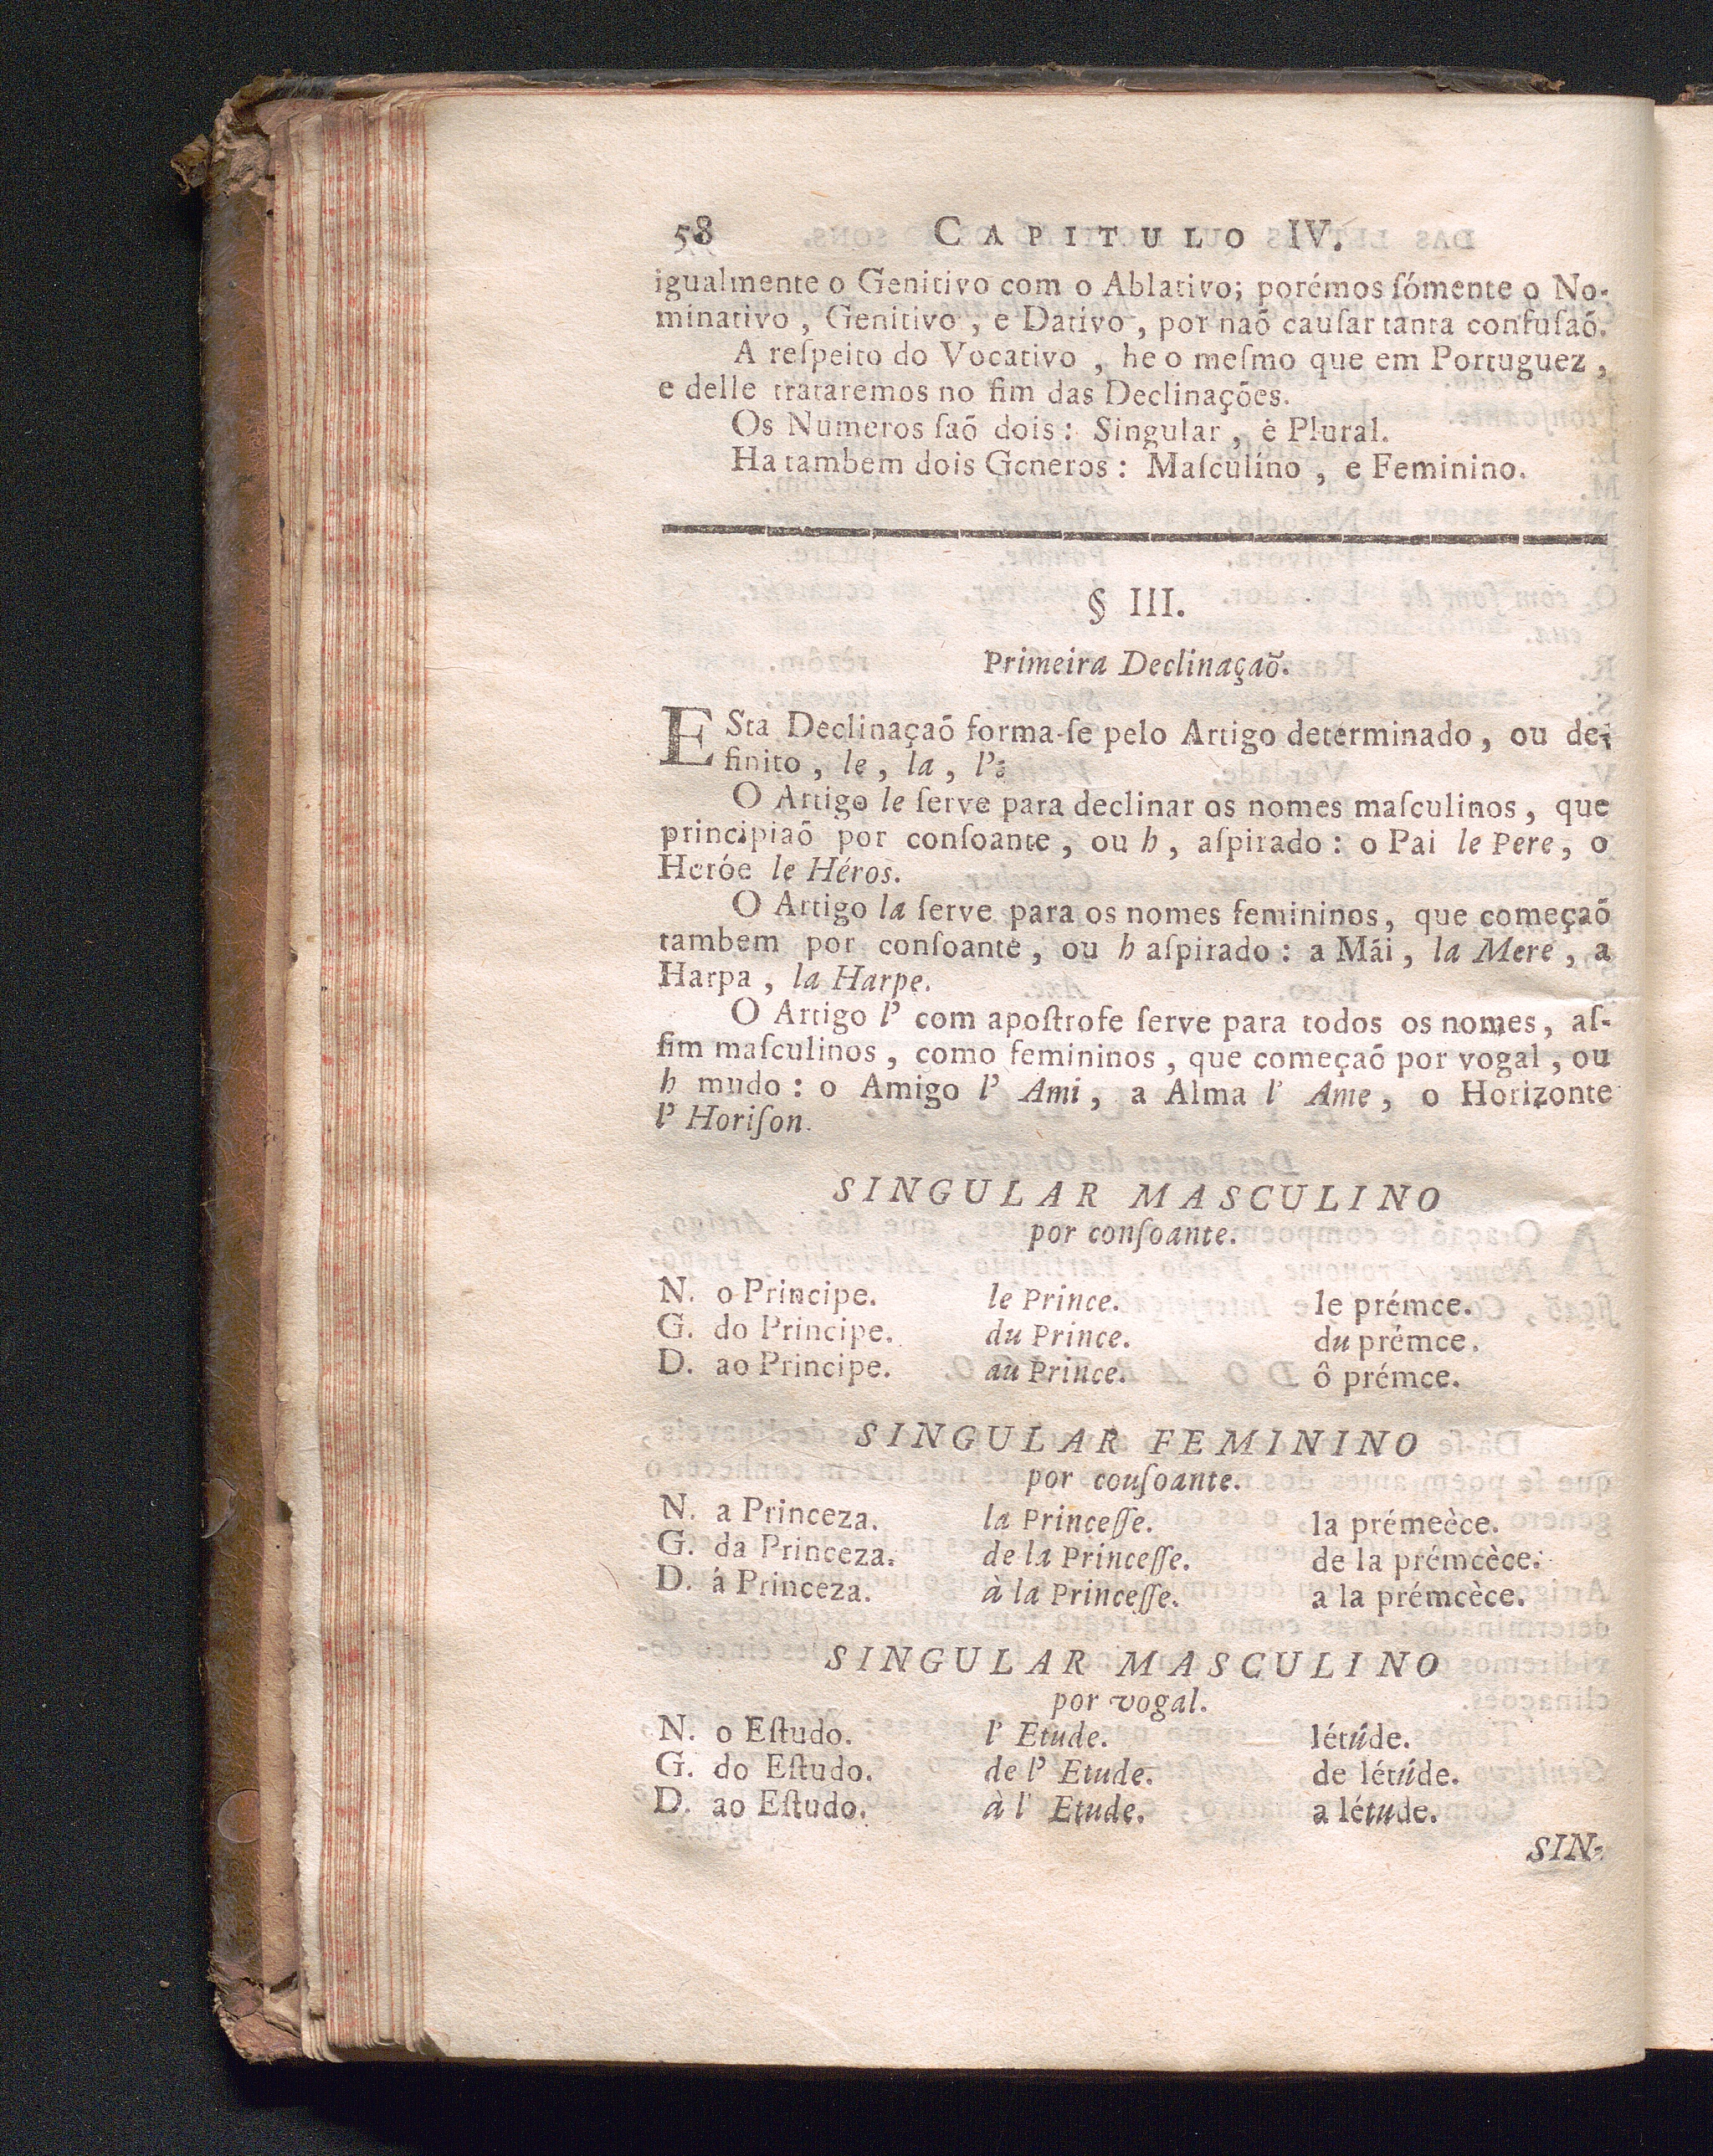 58 CAPITULO IV.
igualmente o Genitivo com o Ablativo; porémos ſómente o No-
minativo, Genitivo, e Dativo, por naõ cauſar tanta confuſaõ.
A reſpeito do Vocativo, he o meſmo que em Portuguez,
e delle trataremos no fim das Declinações.
Os Numeros ſaõ dois: Singular, e Plural.
Ha tambem dois Generos: Maſculíno, e Feminino.
§ III.
Primeira Declinaçaõ.
ESta Declinaçaõ forma-ſe pelo Artigo determinado, ou de-
finito, le, la, l':
O Artigo le ſerve para declinar os nomes maſculinos, que
principiaõ por conſoante, ou h, aſpirado: o Pai le Pere, o
Heróe le Héros.
O Artigo la ſerve para os nomes femininos, que começaõ
tambem por conſoante, ou h aſpirado: a Mãi, la Mere, a
Harpa, la Harpe.
O Artigo l' com apoſtrofe ſerve para todos os nomes, aſ-
ſim maſculinos, como femininos, que começaõ por vogal, ou
h mudo: o Amigo l' Ami, a Alma l' Ame, o Horizonte
l' Horiſon.
SINGULAR MASCULINO
por conſoante.
N. o Principe. le Prince. le prémce.
G. do Principe. du Prince. du prémce.
D. ao Principe. au Prince. ô prémce.
SINGULAR FEMININO
por couſoante.
N. a Princeza. la Princeſſe. la prémeèce.
G. da Princeza. de la Princeſſe. de la prémcèce.
D. á Princeza. à la Princeſſe. a la prémcèce.
SINGULAR MASCULINO
por vogal.
N. o Eſtudo. l' Etude. létúde.
G. do Eſtudo. de l' Etude. de létúde.
D. ao Eſtudo. à l' Etude. a létude.
SIN-